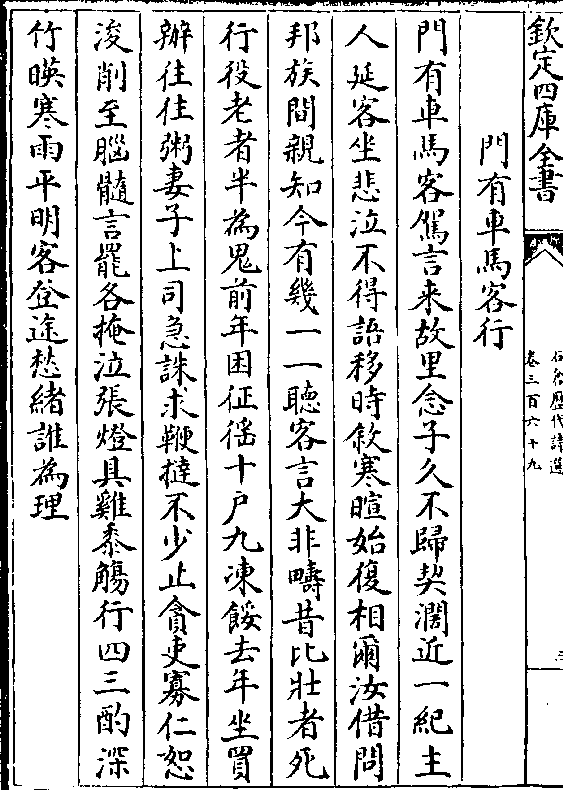 欽定四庫全書
石倉歷代詩選
卷三百六十九
門有車馬客行
門有車馬客駕言来故里念子久不歸契濶近一紀主
人延客坐悲泣不得語移時敘寒暄始復相爾汝借問
邦族間親知今有幾一一聽客言大非疇昔比壯者死
行役老者半為鬼前年困征徭十户九凍餒去年坐買
辦往往粥妻子上司急誅求鞭撻不少止貪吏寡仁恕
浚削至腦髓言罷各掩泣張燈具雞黍觴行四三酌深
竹暎寒雨平明客登途愁緒誰為理